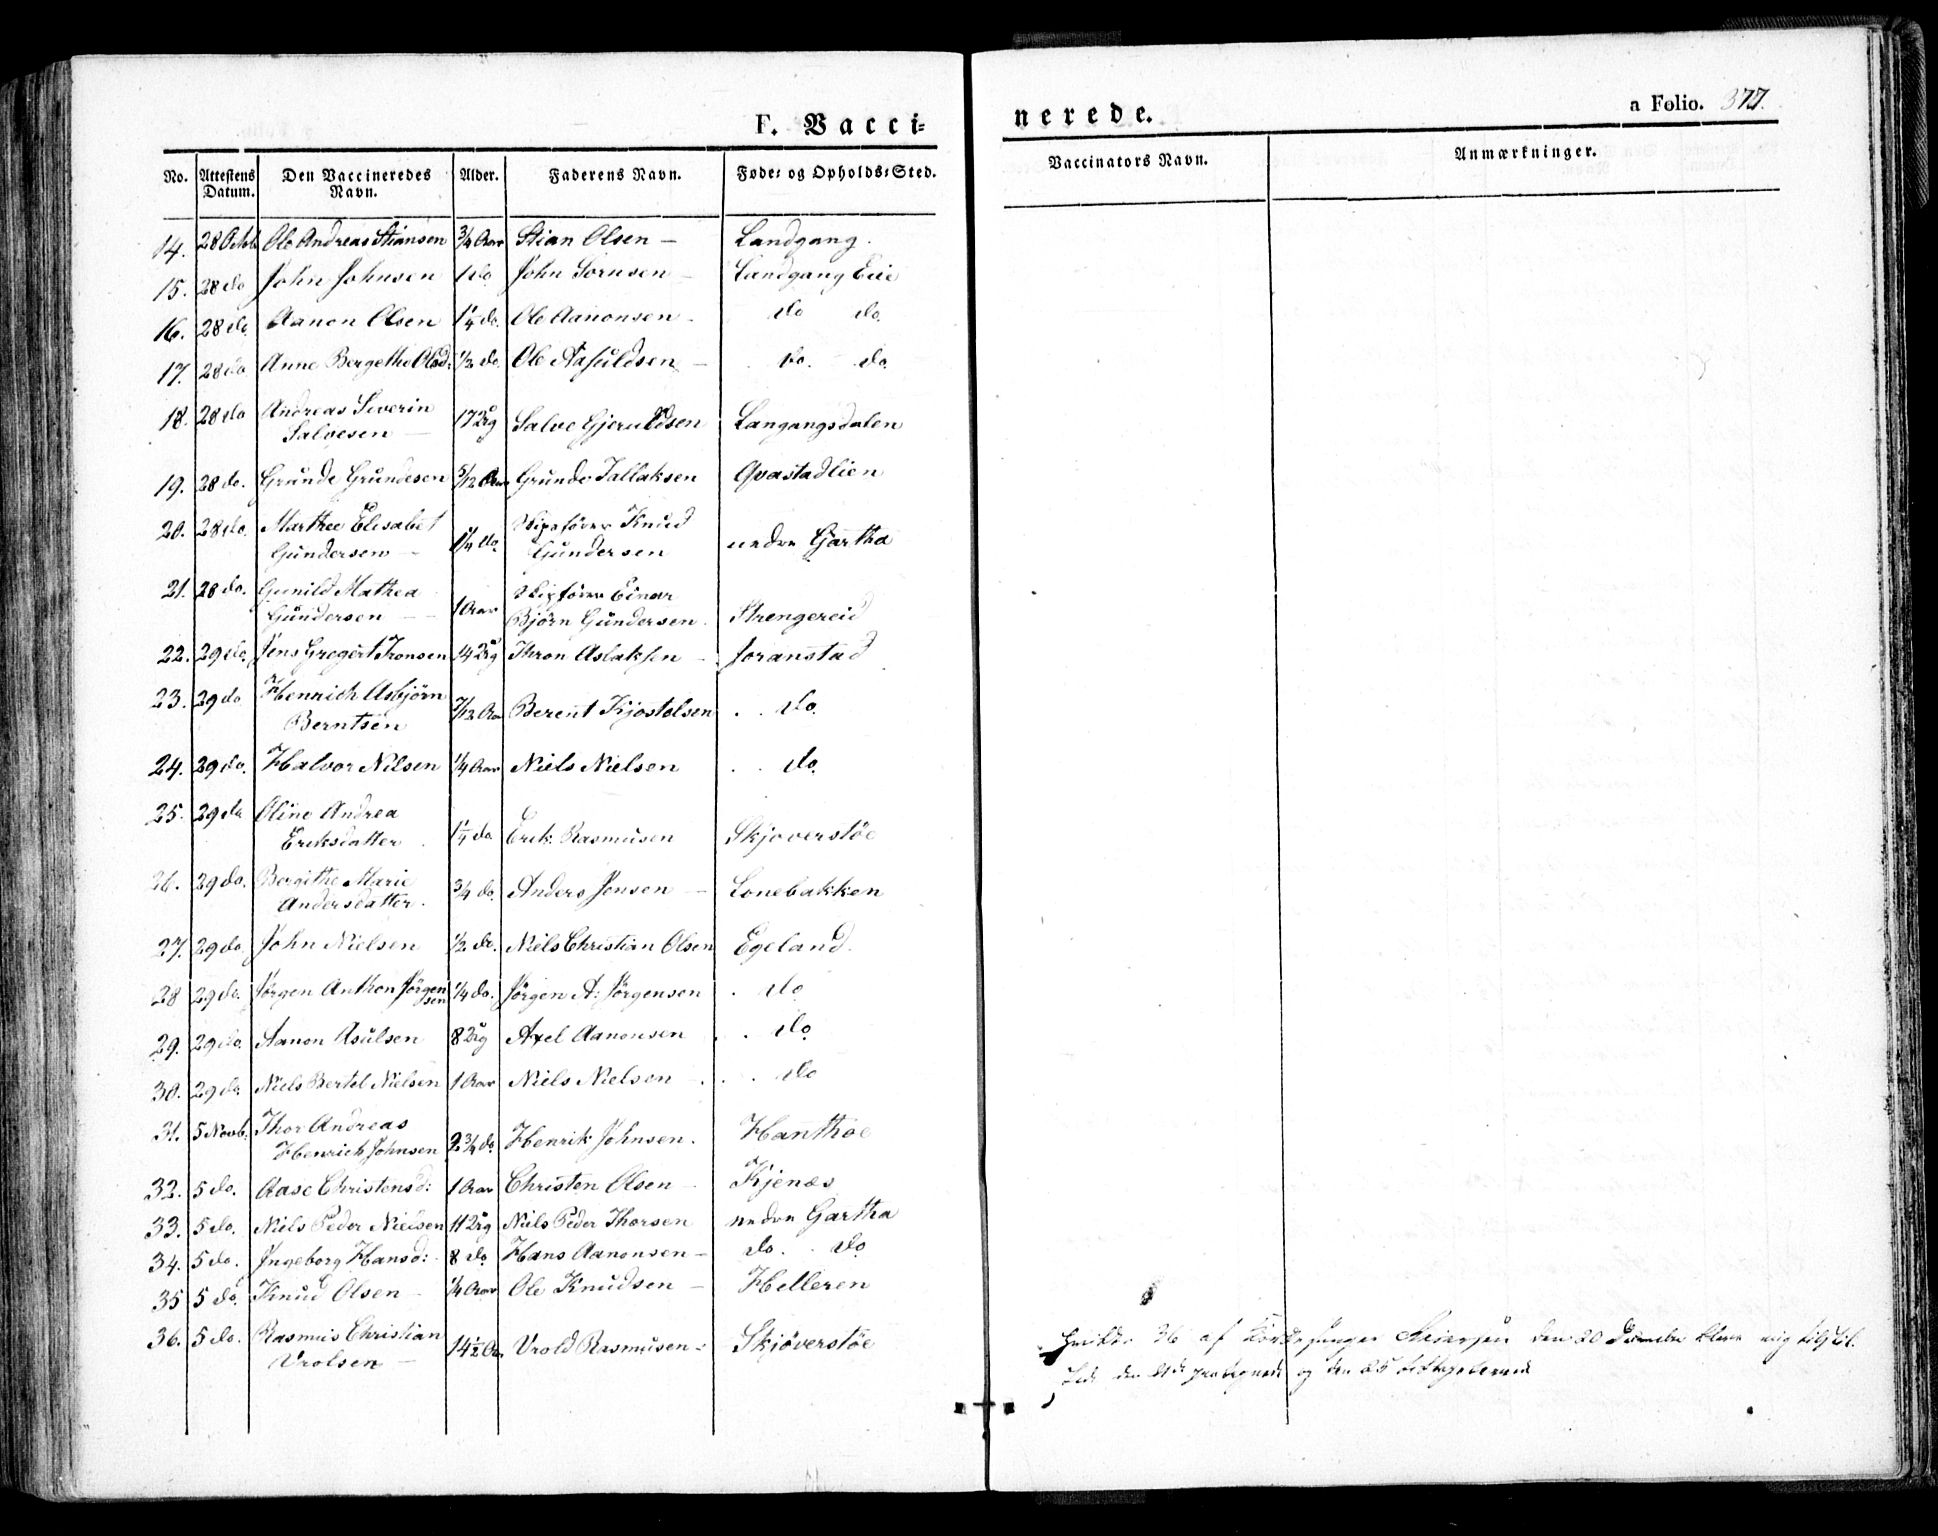 F. Vacci=
nerede.
a Folio. 377.
No. Attestens Datum. Den Vaccineredes Navn. Alder. Faderens Navn. Føde= og Opholds=Sted. Vaccinators Navn. Anmærkninger.
14. 28 Octob Ole Andreas Stiansen 3/4 Aar Stian Olsen — Landgang.
15. 28 do John Johnsen 1 do John Sørnsen — Landgang Eie
16. 28 do. Aanon Olsen 1 1/4 do. Ole Aanonsen — do do.
17. 28 do. Anne Bergethe Olsd: 1/2 do. Ole Aasuldsen — do. do.
18. 28 do Andreas Severin
Salvesen — 17 Ug Salve Gjeruldsen Langangsdalen
19. 28 do. Grunde Grundesen 5/12 Aar Grunde Tallaksen Qvastadlien
20. 28 do. Marthee Elisabet Skipsfører Knud
Gundersen — 1 1/4 do. Gundersen nedre Gartha
21. 28 do. Gunild Mathea Skipfører Einar
Gundersen — 1 Aar Bjørn Gundersen. Strengereid
22. 29 do. Jens Gregert Tronsen 14 Ug Thron Aslaksen — Joranstad
23. 29 do Henrich Asbjørn
Berntsen 7/12 Aar Berent Kjostolsen . . do.
24. 29 do. Halvor Nilsen 1/4 Aar Niels Nielsen . . do.
25. 29 do Oline Andrea
Eriksdatter. 1 1/4 do Erik Rasmusen Skjoverstøe
26. 29 do. Bergithe Marie
Andersdatter. 3/4 do. Anders Jensen — Lonebakken
27. 29 do John Nielsen 1/2 do. Niels Christian Olsen Egeland.
28 29 do. Jørgen Anthon Jørgen
sen 1/4 do. Jørgen A: Jørgensen . do
29. 29 do. Aanon Asulsen 8 Ug Axel Aanonsen . . do
30. 29 do. Niels Bertel Nielsen 1 Aar Niels Nielsen — . . . do
31. 5 Novb. Thor Andreas
Henrich Johnsen 2 3/4 do. Henrik Johnsen. Hanthoe
32. 5 do. Aase Christensd: 1 Aar Christen Olsen — Kjenæs
33. 5 do. Niels Peder Nielsen 11 Ug Niels Peder Thorsen nedre Gartha
34. 5 do. Ingeborg Hansd: 8 do Hans Aanonsen — do. do
35 5 do. Knud Olsen — 1/4 Aar Ole Knudsen — Helleren
36. 5 do. Rasmus Christian
Vrolsen — 14 1/2 Aar Vrold Rasmusen — Skjöverstöe
36 af den 20 December blev mig tilstil.
den 21de og den 25